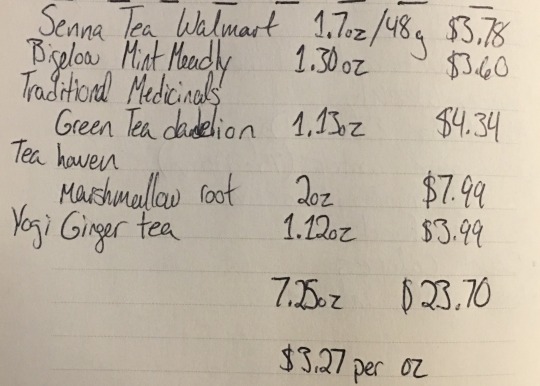 Senna Tea Walmart 1.7oz/48g $3.78
Bigelow Mint Meadly 1.30oz $3.60
Traditional Medicinals
Green Tea dandelion 1.13oz $4.34
Tea haven
Marshmallow root 2oz $7.99
Yogi Ginger tea 1.12oz $3.99
7.25oz $23.70
$3.27 per oz